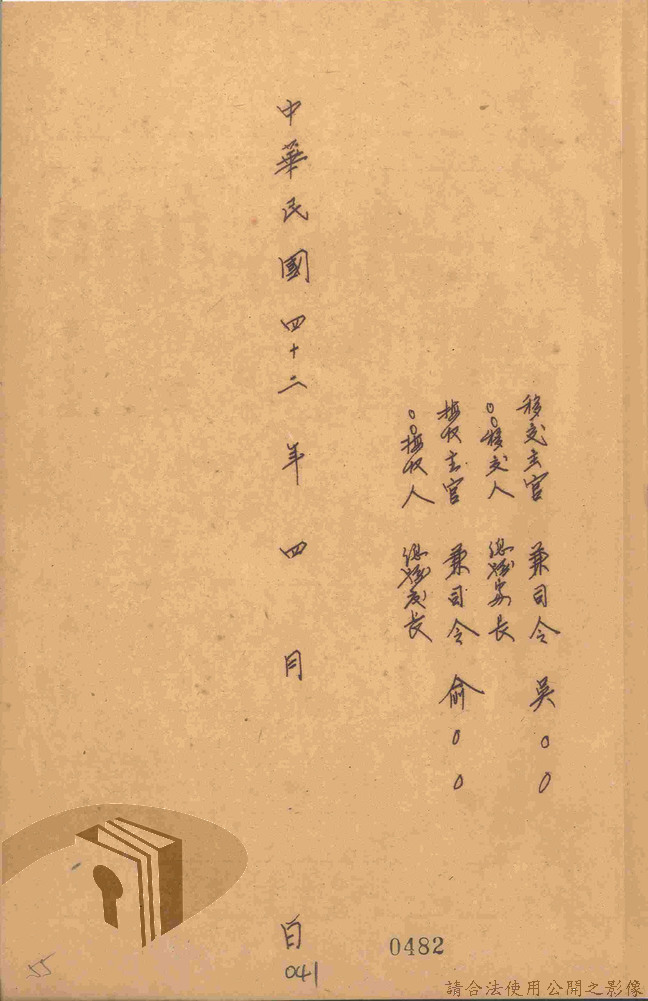 移交主官 兼司令 吳00
00移交人 總務處長
接收主官 兼司令 俞00
00接收人 總務處長
中華民國四十二年四月 日
041
0482
55
請合法使用公開之影像